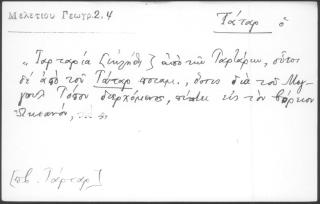 Μελετίου Γεωγρ. 2.4
Τάταρ ὁ
"Ταρταρία ἐκλήθη ἀπὸ τῶν Ταρτάρων, οὗτοι
δὲ ἀπὸ τοῦ Τάταρ ποταμ., ὅστις διὰ τοῦ
Τόπου διερχόμενος, πίπτει εἰς τὸν βόρειον
Ὠκεανόν,
[πβ. Τάρταρ]